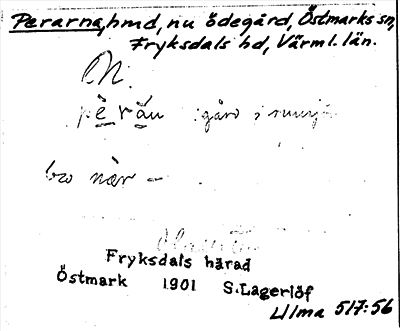 Perarna, hmd, nu ödegård, Östmarks sn,
Fryksdals hd, Värml. län.
N.
gård i
bro när –
Fryksdals härad
Östmark 1901 S. Lagerlöf
Ulma 517:56